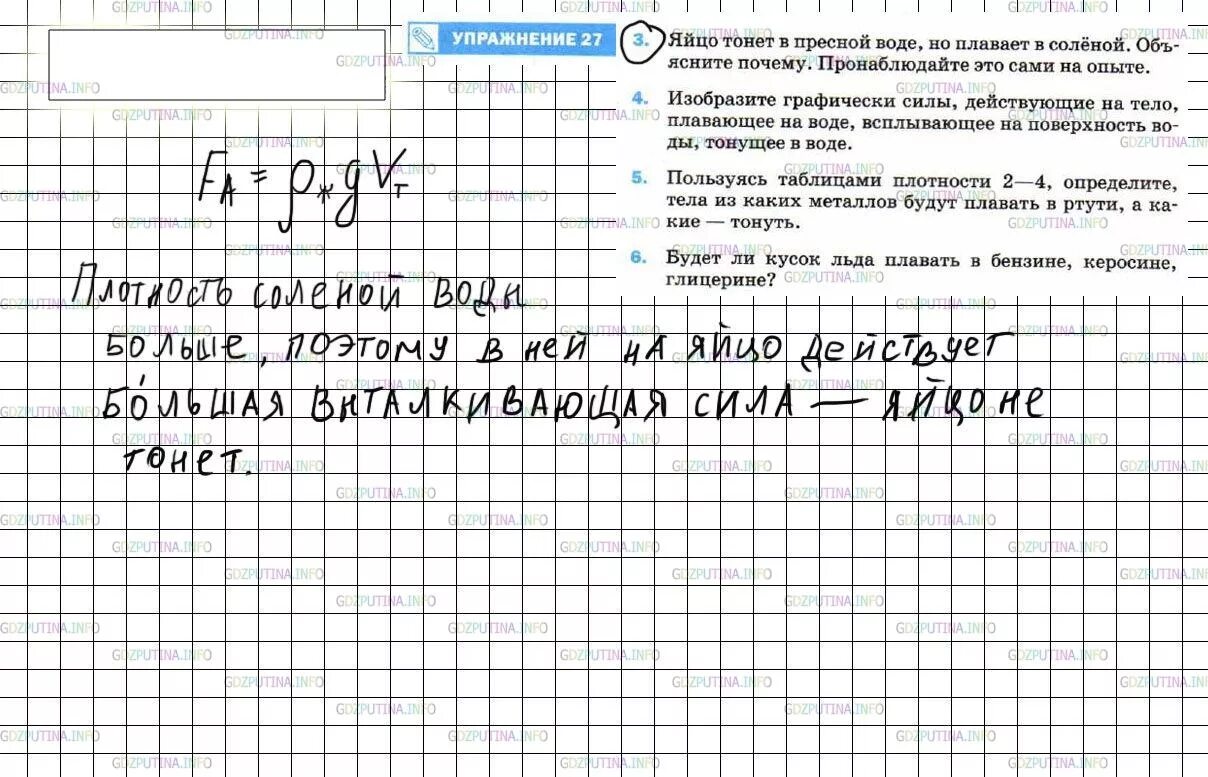 УПРАЖНЕНИЕ 27
3. Яйцо тонет в пресной воде, но плавает в солёной. Объ-
ясните почему. Пронаблюдайте это сами на опыте.
4. Изобразите графически силы, действующие на тело,
плавающее на воде, всплывающее на поверхность во-
ды, тонущее в воде.
5. Пользуясь таблицами плотности 2—4, определите,
тела из каких металлов будут плавать в ртути, а ка-
кие — тонуть.
6. Будет ли кусок льда плавать в бензине, керосине,
глицерине?
F_A = ρ_ж g V_т
Плотность соленой воды
больше, поэтому в ней на яйцо действует
бо́льшая выталкивающая сила — яйцо не
тонет.
GDZPUTINA.INFO